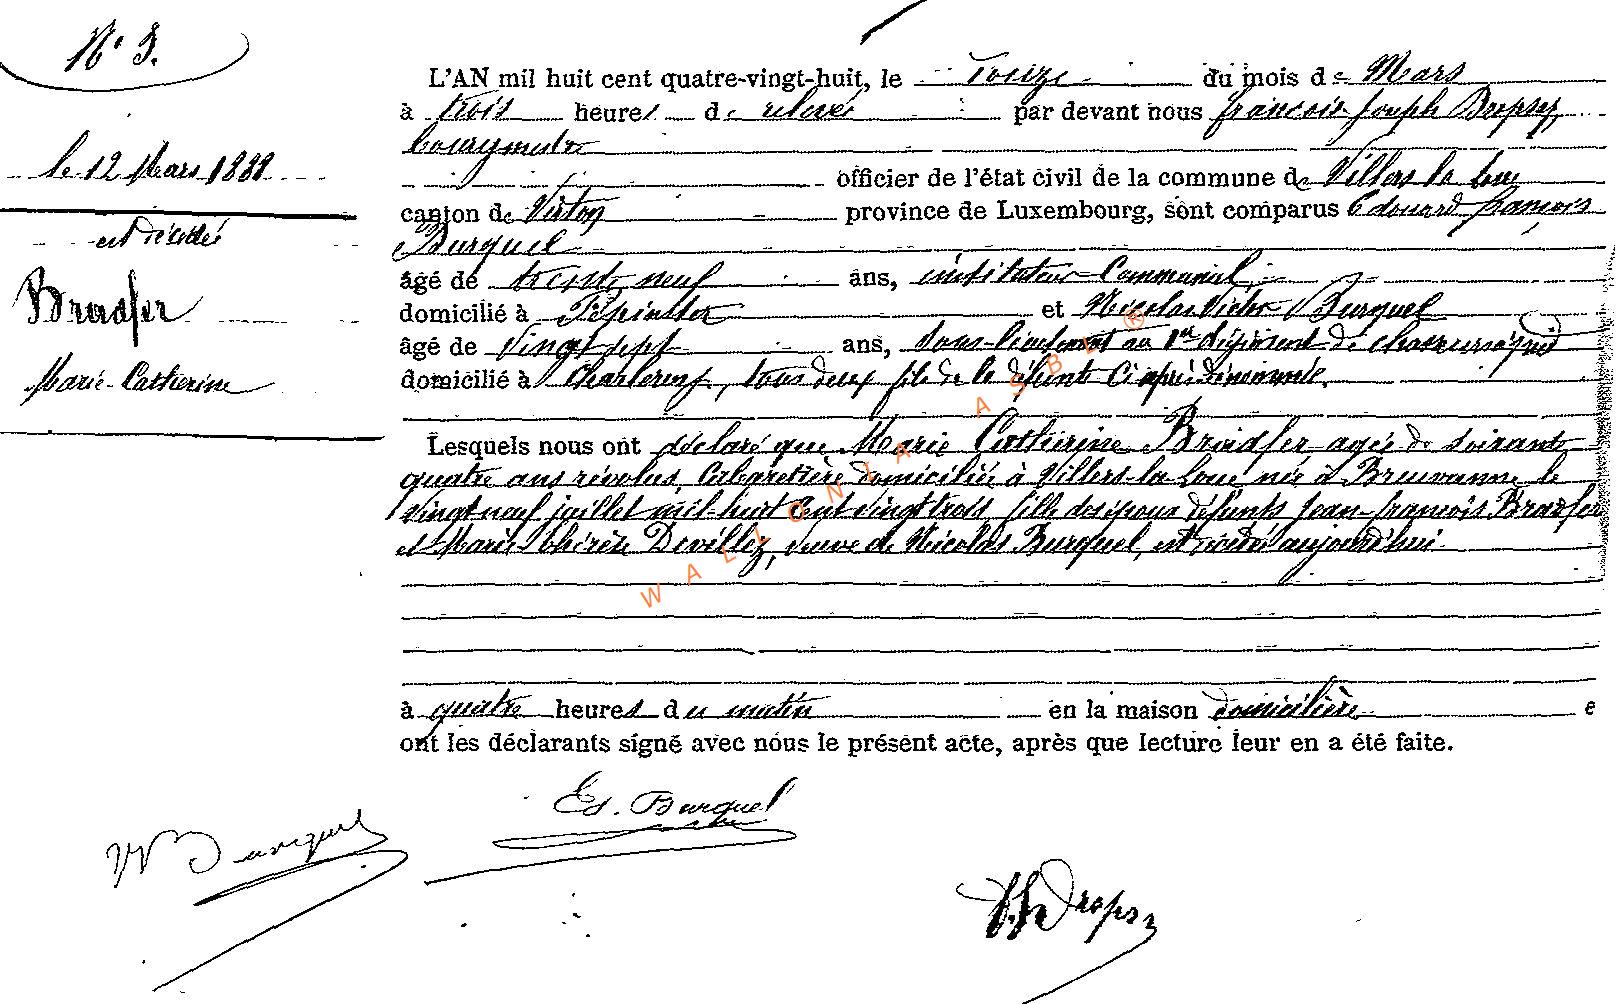 N° 3.
le 12 Mars 1888
est décédée
Bradfer
Marie-Catherine
L'AN mil huit cent quatre-vingt-huit, le douze du mois de Mars
à trois heures de relevée par devant nous françois-Joseph Dropsy,
bourgmestre
officier de l'état civil de la commune de Villers la loue
canton de Virton province de Luxembourg, sont comparus Edouard françois
Burquel
âgé de trente neuf ans, instituteur Communal,
domicilié à Pépinster et Nicolas Victor Burquel
âgé de Vingt sept ans, Sous-lieutenant au 1er Régiment de chasseurs à pied
domicilié à Charleroy, tous deux fils de la défunte Ci après dénommée.
Lesquels nous ont déclaré que Marie Catherine Bradfer agée de soixante
quatre ans révolus, Cabaretière domiciliée à Villers-la-loue née à Breuvanne le
Vingt neuf juillet mil-huit Cent Vingt trois fille des époux défunts Jean-françois Bradfer
et Marie-thérèse Devillez, veuve de Nicolas Burquel, est décédée aujourd'hui
à quatre heures du matin en la maison domicilière e
ont les déclarants signé avec nous le présent acte, après que lecture leur en a été faite.
Ed. Burquel
NV Burquel
F J Dropsy
WALLONIA ASBL ®